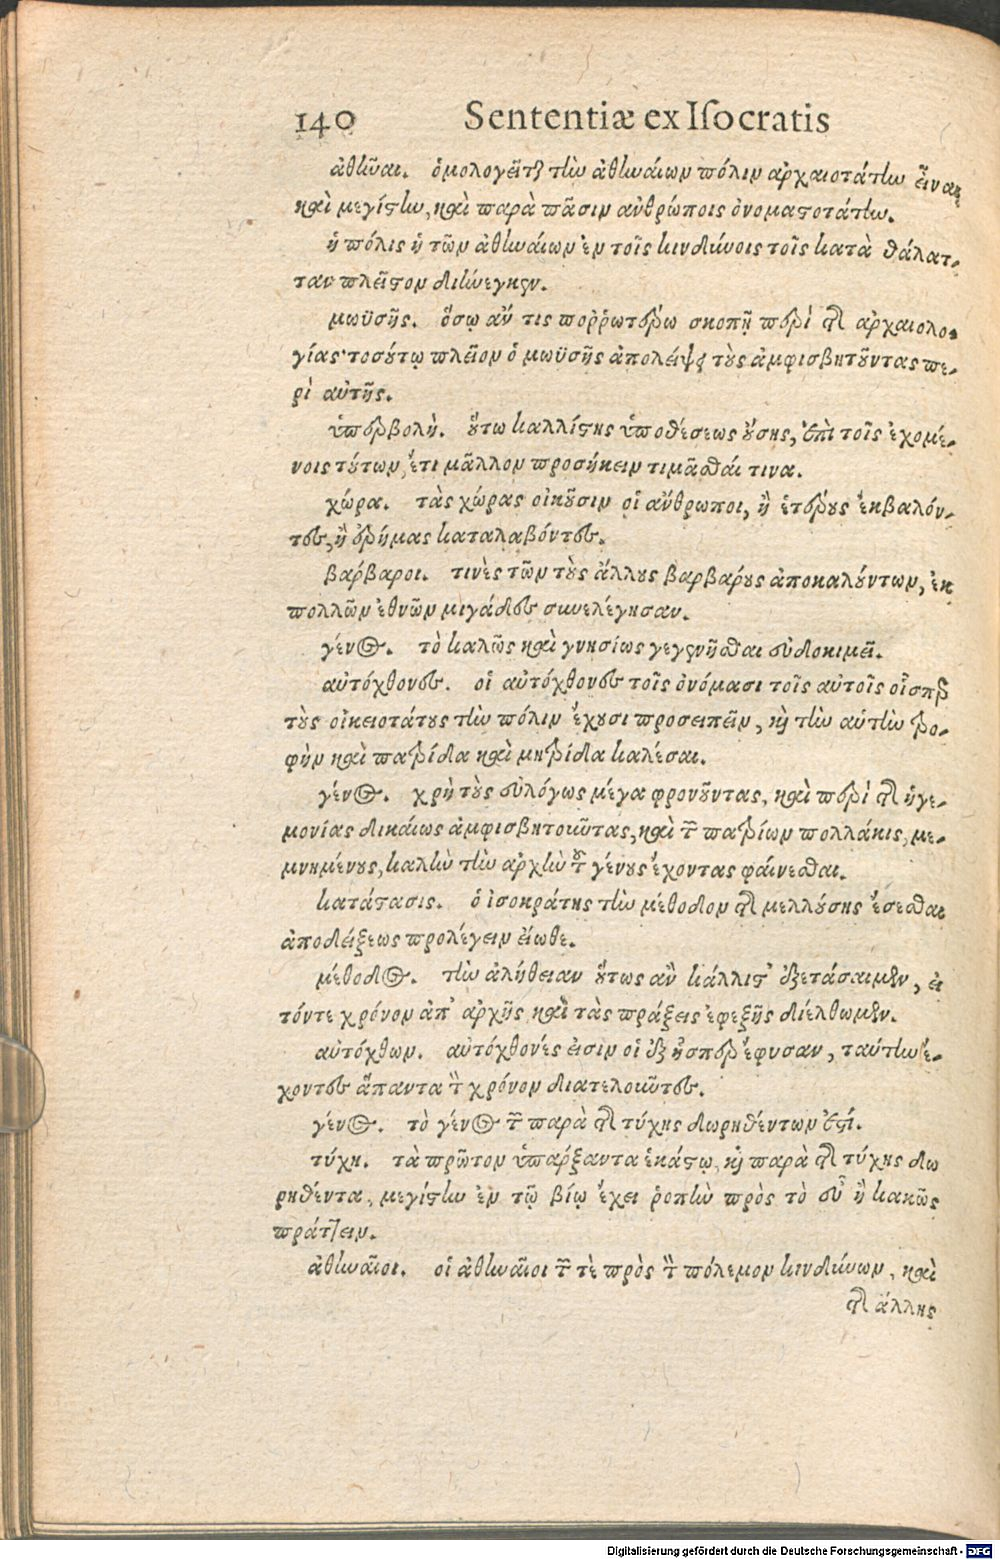 140 Sententiæ ex Iſocratis
ἀθῆναι. ὁμολογεῖται τὴν ἀθηναίων πόλιν ἀρχαιοτάτην εἶναι,
καὶ μεγίστην, καὶ παρὰ πᾶσιν ἀνθρώποις ὀνομαστοτάτην.
ἡ πόλις ἡ τῶν ἀθηναίων ἐν τοῖς κινδύνοις τοῖς κατὰ θάλατ-
ταν πλεῖστον διήνεγκεν.
μωϋσῆς. ὅσῳ ἄν τις ποῤῥωτέρω σκοπῇ περὶ τῆς ἀρχαιολο-
γίας· τοσούτῳ πλεῖον ὁ μωϋσῆς ἀπολείψει τοὺς ἀμφισβητοῦντας πε-
ρὶ αὐτῆς.
ὑπερβολὴ. οὕτω καλλίστης ὑποθέσεως οὔσης, ἐπὶ τοῖς ἐχομέ-
νοις τούτων, ἔτι μᾶλλον προσήκειν τιμᾶσθαί τινα.
χώρα. τὰς χώρας οἰκοῦσιν οἱ ἄνθρωποι, ἢ ἑτέρους ἐκβαλόν-
τες, ἢ ἐρήμας καταλαβόντες.
βαρβαροι. τινὲς τῶν τοὺς ἄλλους βαρβαρους ἀποκαλούντων, ἐκ
πολλῶν ἐθνῶν μιγάδες συνελέγησαν.
γένος. τὸ καλῶς καὶ γνησίως γεγενῆσθαι εὐδοκιμεῖ.
αὐτόχθονες. οἱ αὐτόχθονες τοῖς ὀνόμασι τοῖς αὐτοῖς οἷσπερ
τοὺς οἰκειοτάτους τὴν πόλιν ἔχουσι προσειπεῖν, καὶ τὴν αὐτὴν τρο-
φὴν καὶ πατρίδα καὶ μητρίδα καλέσαι.
γένος. χρὴ τοὺς εὐλόγως μέγα φρονοῦντας, καὶ περὶ τῆς ἡγε-
μονίας δικαίως ἀμφισβητοῦντας, καὶ τῶν πατρίων πολλάκις, με-
μνημένους, καλὴν τὴν ἀρχὴν τοῦ γένους ἔχοντας φαίνεσθαι.
κατάστασις. ὁ ἰσοκράτης τὴν μέθοδον τῆς μελλούσης ἔσεσθαι
ἀποδείξεως προλέγειν εἴωθε.
μέθοδος. τὴν ἀλήθειαν οὕτως ἂν κάλλιστ' ἐξετάσαιμεν, εἰ
τόντε χρόνον ἀπ' ἀρχῆς καὶ τὰς πράξεις ἐφεξῆς διέλθωμεν.
αὐτόχθων. αὐτόχθονές εἰσιν οἱ ἐξ ἧσπερ ἔφυσαν, ταύτην ἔ-
χοντες ἅπαντα τὸν χρόνον διατελοῦντες.
γένος. τὸ γένος τῶν παρὰ τῆς τύχης δωρηθέντων ἐστί.
τύχη. τὰ πρῶτον ὑπάρξαντα ἑκάστῳ, καὶ παρὰ τῆς τύχης δω
ρηθέντα, μεγίστην ἐν τῷ βίῳ ἔχει ῥοπὴν πρὸς τὸ εὖ ἢ κακῶς
πράττειν.
ἀθηναῖοι. οἱ ἀθηναῖοι τῶν τὲ πρὸς τὸν πόλεμον κινδύνων, καὶ
τῆς ἄλλης
Digitalisierung gefördert durch die Deutsche Forschungsgemeinschaft - DFG